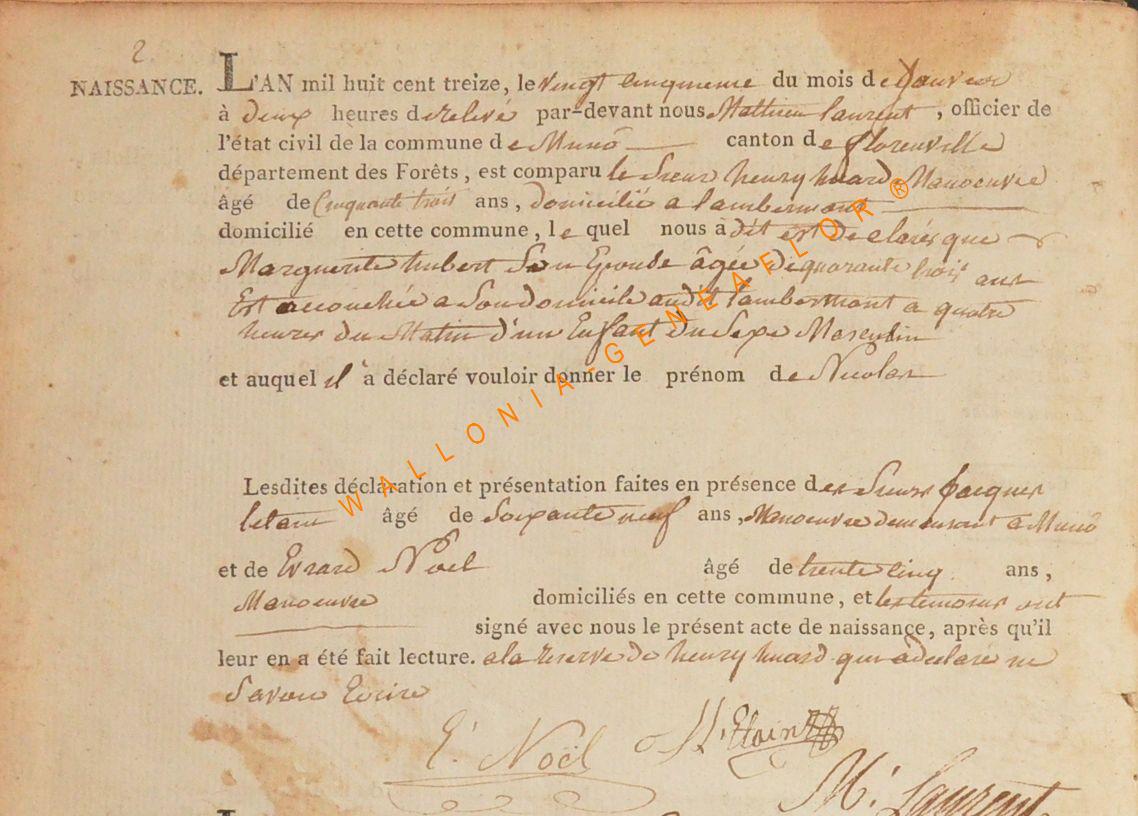 2
NAISSANCE. L'AN mil huit cent treize, le vingt cinquieme du mois de Janvier
à deux heures de relevé par-devant nous Mathieu laurent, officier de
l'état civil de la commune de Muno canton de florenville
département des Forêts, est comparu le Sieur henry huard Manoeuvre
âgé de Cinquante trois ans, domicilié a lambermont
domicilié en cette commune, le quel nous a dit et declaré que
Marguerite hubert Son Epouse âgée de quarante trois ans
Est accouchée a Son domicile audit lambermont a quatre
heures du Matin d'un Enfant du Sexe Masculin
et auquel il a déclaré vouloir donner le prénom de Nicolas
Lesdites déclaration et présentation faites en présence des Sieurs jacques
âgé de Soixante neuf ans, Manoeuvre demeurant a Muno
et de Evrard Noël âgé de trente cinq ans,
Manoeuvre domiciliés en cette commune, et les temoins ont
signé avec nous le présent acte de naissance, après qu'il
leur en a été fait lecture. a la reserve de henry huard qui a declaré ne
Savoir Ecrire
E. Noël
M. Laurent
WALLONIA-GENEAFLOR®